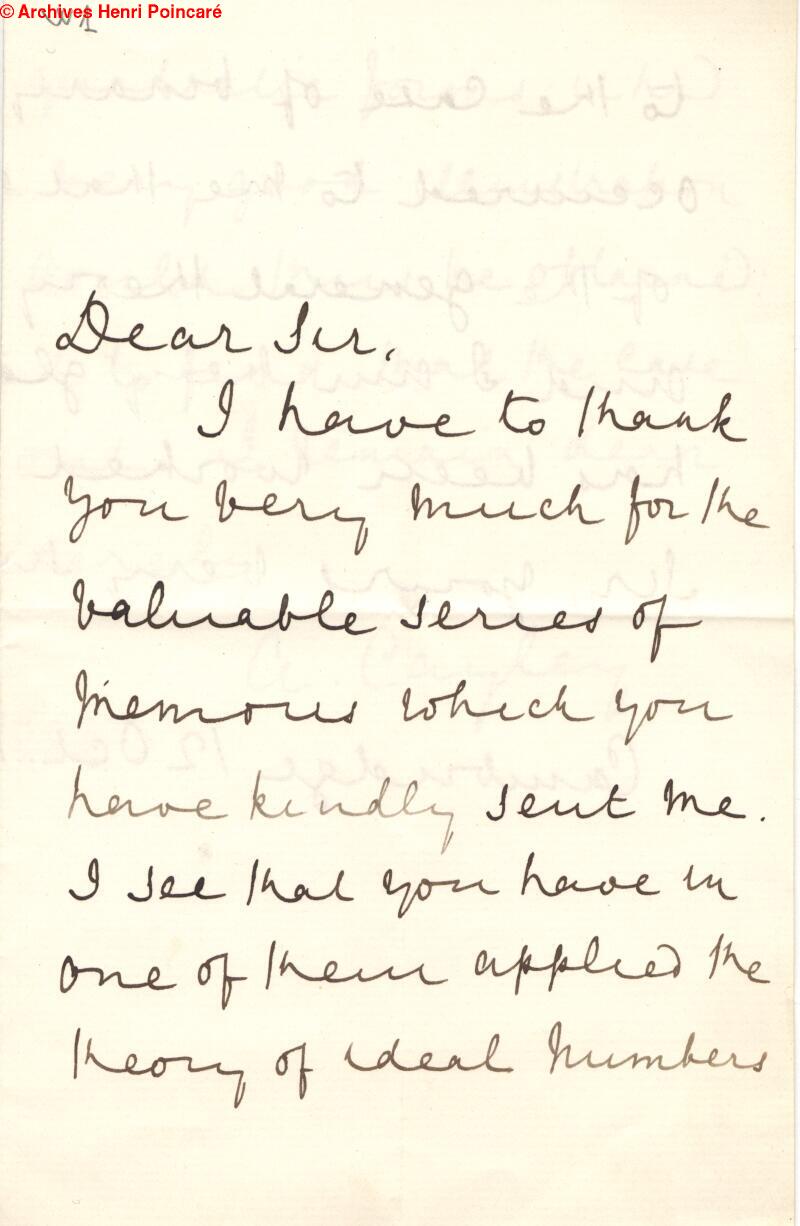 © Archives Henri Poincaré
Dear Sir,
I have to thank
you very much for the
valuable series of
Memoirs which you
have kindly sent me.
I see that you have in
one of them applied the
theory of ideal numbers